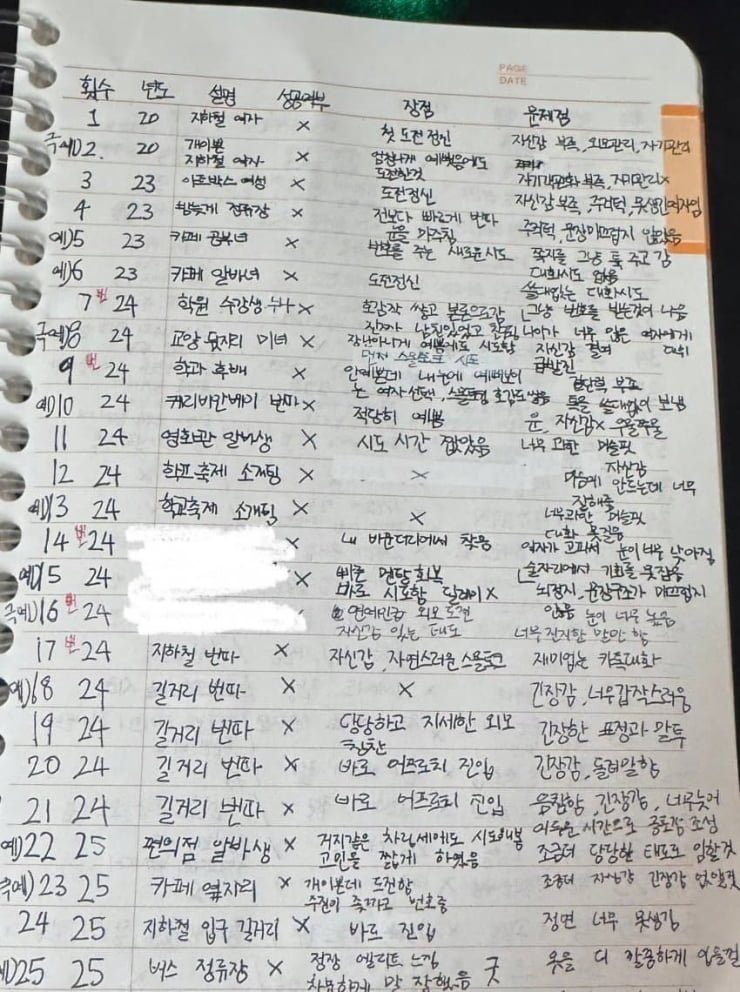 PAGE
DATE
횟수 년도 설명 성공여부 장점 문제점
1 20 지하철 여자 × 첫 도전정신 자신감 부족, 외모관리, 자기관리
극예)2. 20 개이쁜 지하철 여자 × 엄청나게 예뻤음에도 도전한것
3 23 아트박스 여성 × 도전정신 부족, 자기관리×
4 23 정류장 × 전보다 빠르게 번따 자신감 부족, 주저함, 못생긴여자임
예)5 23 카페 공부녀 × 눈을 마주침 번호를 주는 새로운시도 쪽지를 그냥 툭 주고 감
예)6 23 카페 알바녀 × 도전정신 대화시도 없음 쓸데없는 대화시도
7 번 24 학원 수강생 누나 × 호감작 쌓고 그냥 번호를 받는것이 나음
극예)8 24 교양 옆자리 미녀 × 장난아니게 예쁨에도 시도함 나이가 너무 많은 여자에게 자신감 결여
9 번 24 학과 후배 × 대처 스몰토크 시도 급발진
예)10 24 캐리비안베이 번따 × 안예쁜데 내눈에 예뻐보이는 여자선택, 스몰토킹 톡을 쓸데없이 보냄
11 24 영화관 알바생 × 적당히 예쁨 시도 시간 짧았음 자신감× 우물쭈물 너무 과한 머슬핏
12 24 학교축제 소개팅 × × 자신감 마음에 안드는데 너무 잘해줌
예)13 24 학교축제 소개팅 × × 너무과한 머슬핏 대화 못질음
14 번 24 × 내 바운더리에서 착용 여자가 고파서 눈이 너무 낮아짐
예)15 24 × 빠른 멘탈회복 바로 시도함 딜레이× 술자리에서 기회를 못잡음 뇌정지, 문장구조가 매끄럽지 않음
극예)16 번 24 연예인급 외모 도전 자신감 있는 태도 눈이 너무 높음 너무 진지한 말만 함
17 번 24 지하철 번따 × 자신감 자연스러운 스몰토크 재미없는 카톡대화
예)18 24 길거리 번따 × × 긴장감, 너무갑작스러움
19 24 길거리 번따 × 당당하고 자세한 외모 칭찬 긴장한 표정과 말투
20 24 길거리 번따 × 바로 어프로치 진입 긴장감, 돌려말함
21 24 길거리 번따 × 바로 어프로치 진입 음침함, 긴장감, 너무늦어 어두운 시간으로 공포감 조성
예)22 25 편의점 알바생 × 거지같은 차림새에도 시도해봄 고민을 짧게 하였음 조금더 당당한 태도로 임할것
극예)23 25 카페 옆자리 × 개이쁜데 도전함 조금더 자신감 긴장감 없앨것
24 25 지하철 입구 길거리 × 바로 진입 정면 너무 못생김
예)25 25 버스 정류장 × 정장 엘리트 느낌 차분하게 말 잘했음 굿 옷을 더 깔끔하게 입을껄